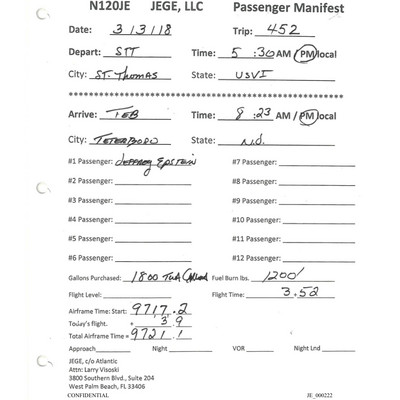 N120JE JEGE, LLC Passenger Manifest
Date: 3/3/18 Trip: 452
Depart: STT Time: 5:30 AM / PM local
City: ST. THOMAS State: USVI
Arrive: TEB Time: 8:23 AM / PM local
City: TETERBORO State: N.J.
#1 Passenger: Jeffrey Epstein #7 Passenger:
#2 Passenger: #8 Passenger:
#3 Passenger: #9 Passenger:
#4 Passenger: #10 Passenger:
#5 Passenger: #11 Passenger:
#6 Passenger: #12 Passenger:
Gallons Purchased: 1800 Fuel Burn lbs. 1200
Flight Level: Flight Time: 3.52
Airframe Time: Start: 9717.2
Today's flight. + 3.9
Total Airframe Time = 9721.1
Approach Night VOR Night Lnd
JEGE, c/o Atlantic
Attn: Larry Visoski
3800 Southern Blvd., Suite 204
West Palm Beach, FL 33406
CONFIDENTIAL JE_000222